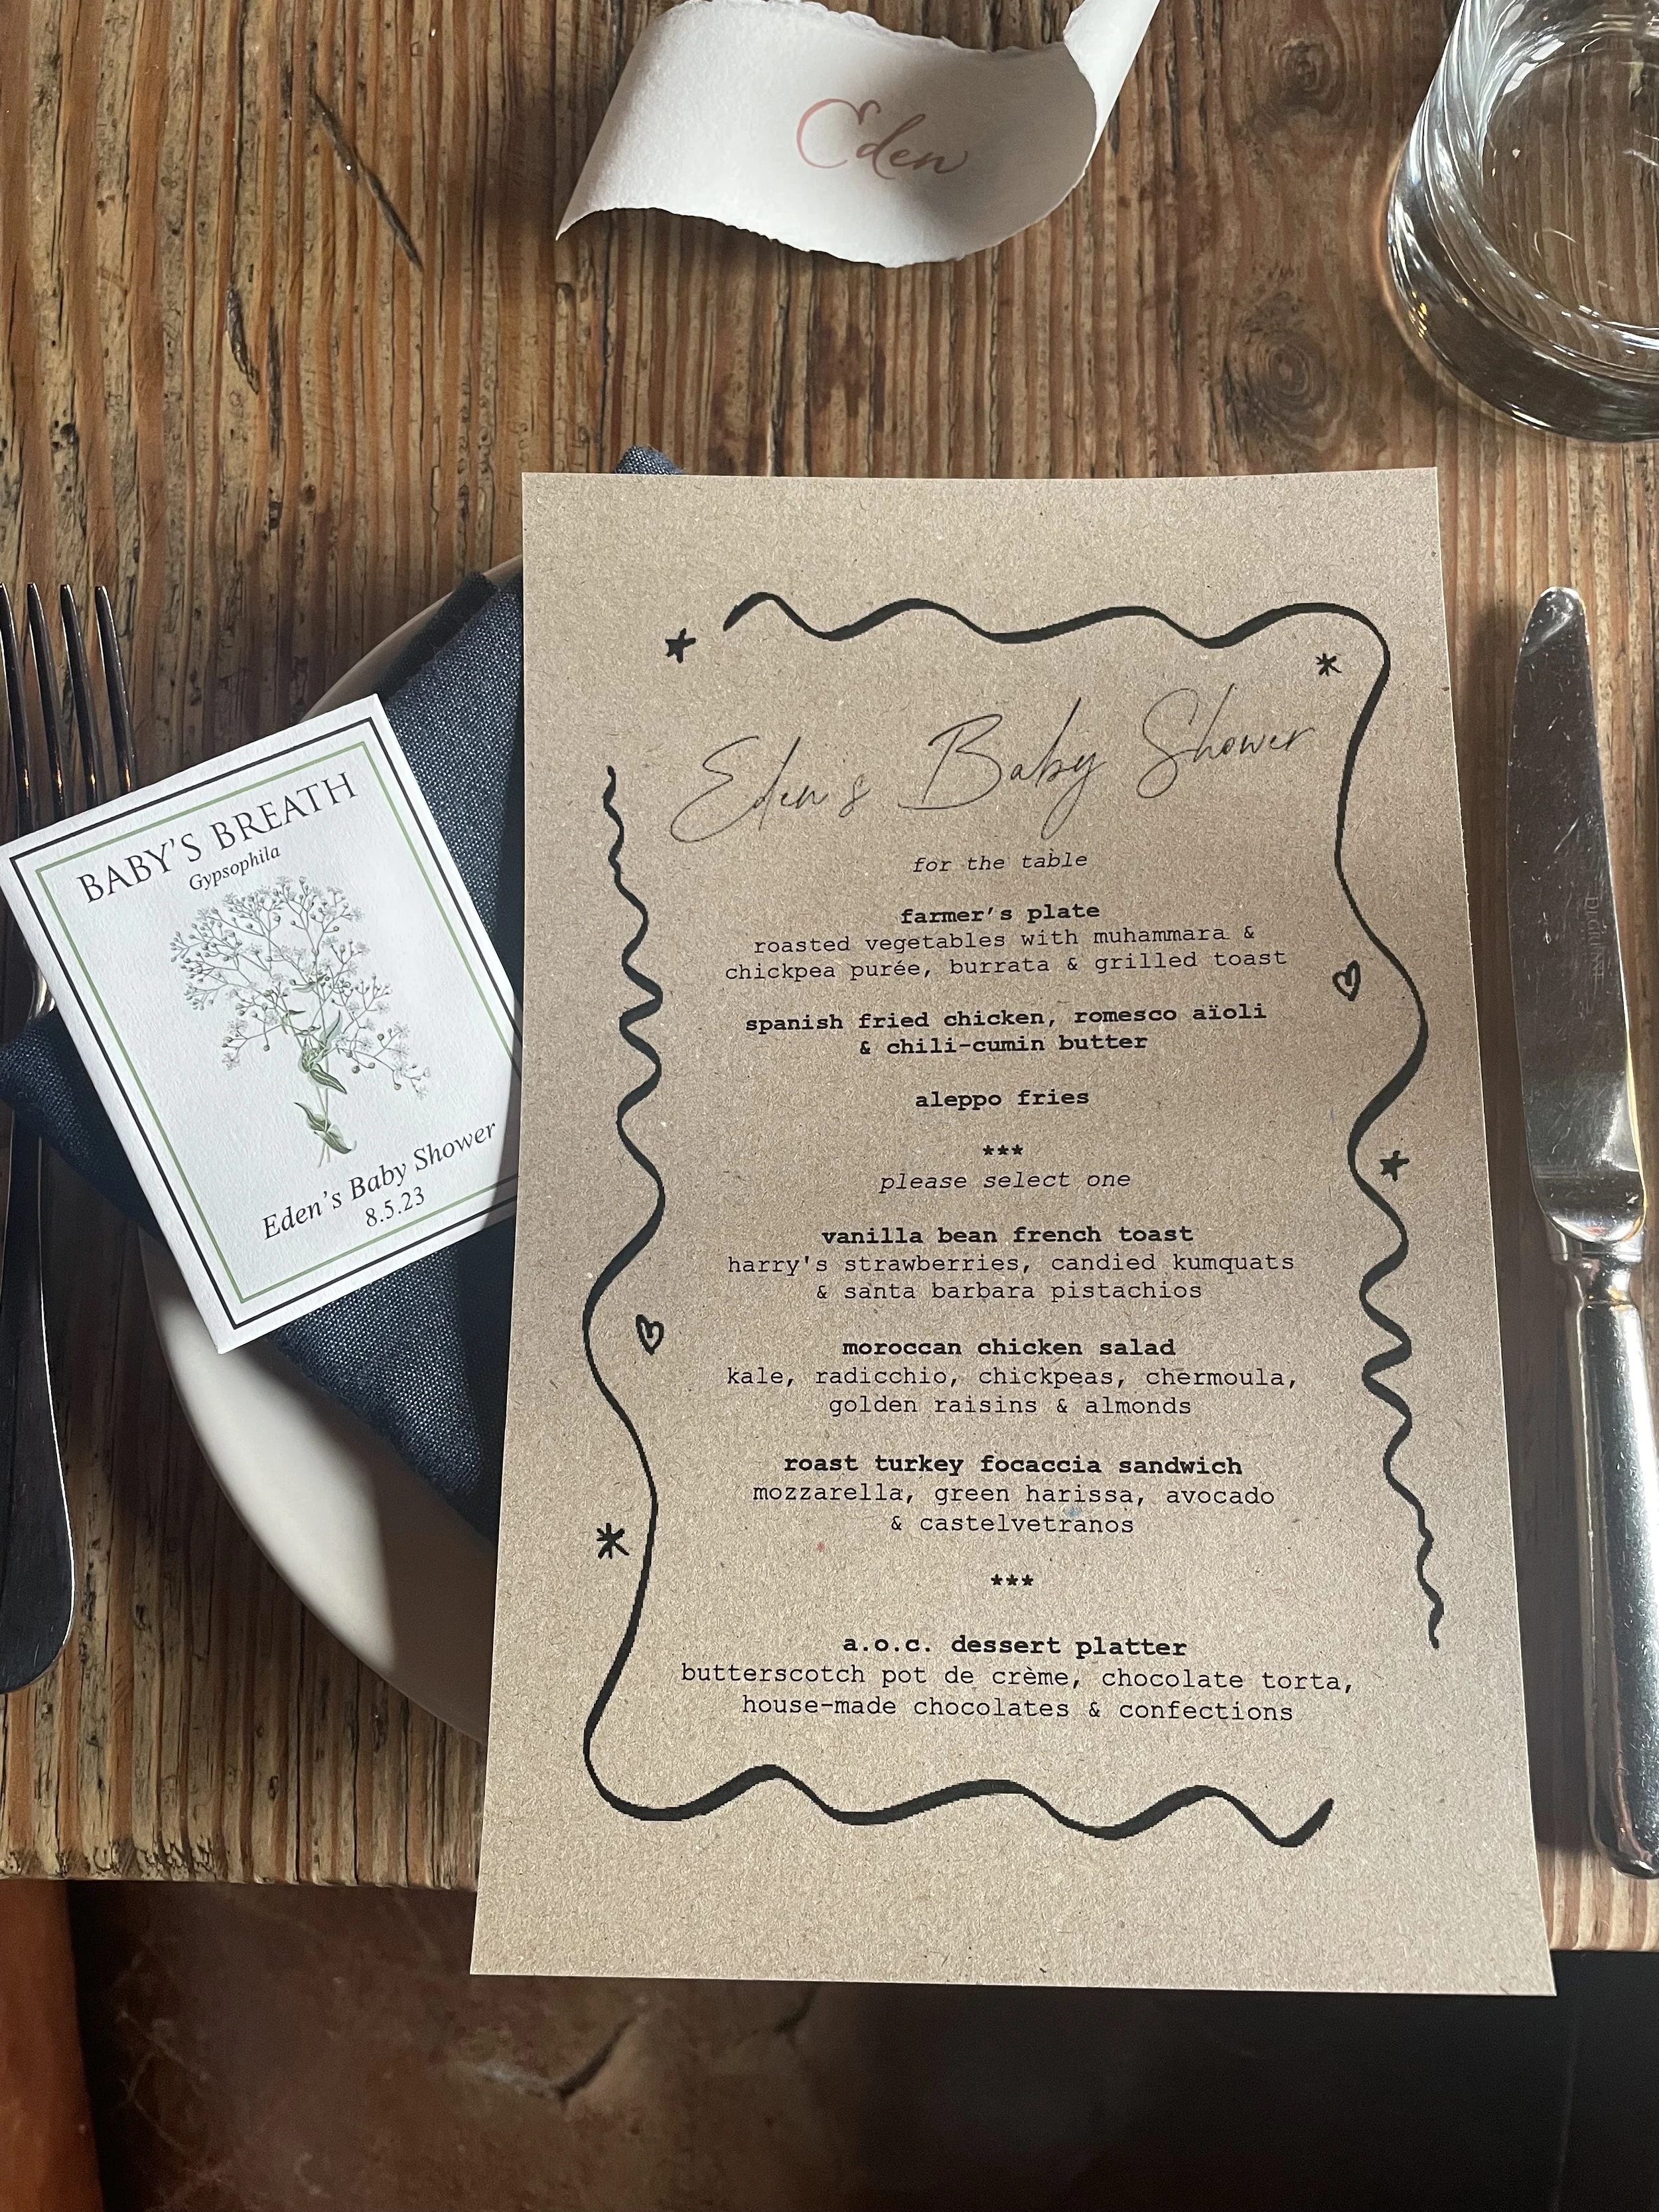 Eden
BABY'S BREATH
Gypsophila
Eden's Baby Shower
8.5.23
Eden's Baby Shower
for the table
farmer's plate
roasted vegetables with muhammara &
chickpea purée, burrata & grilled toast
spanish fried chicken, romesco aïoli
& chili-cumin butter
aleppo fries
***
please select one
vanilla bean french toast
harry's strawberries, candied kumquats
& santa barbara pistachios
moroccan chicken salad
kale, radicchio, chickpeas, chermoula,
golden raisins & almonds
roast turkey focaccia sandwich
mozzarella, green harissa, avocado
& castelvetranos
***
a.o.c. dessert platter
butterscotch pot de crème, chocolate torta,
house-made chocolates & confections